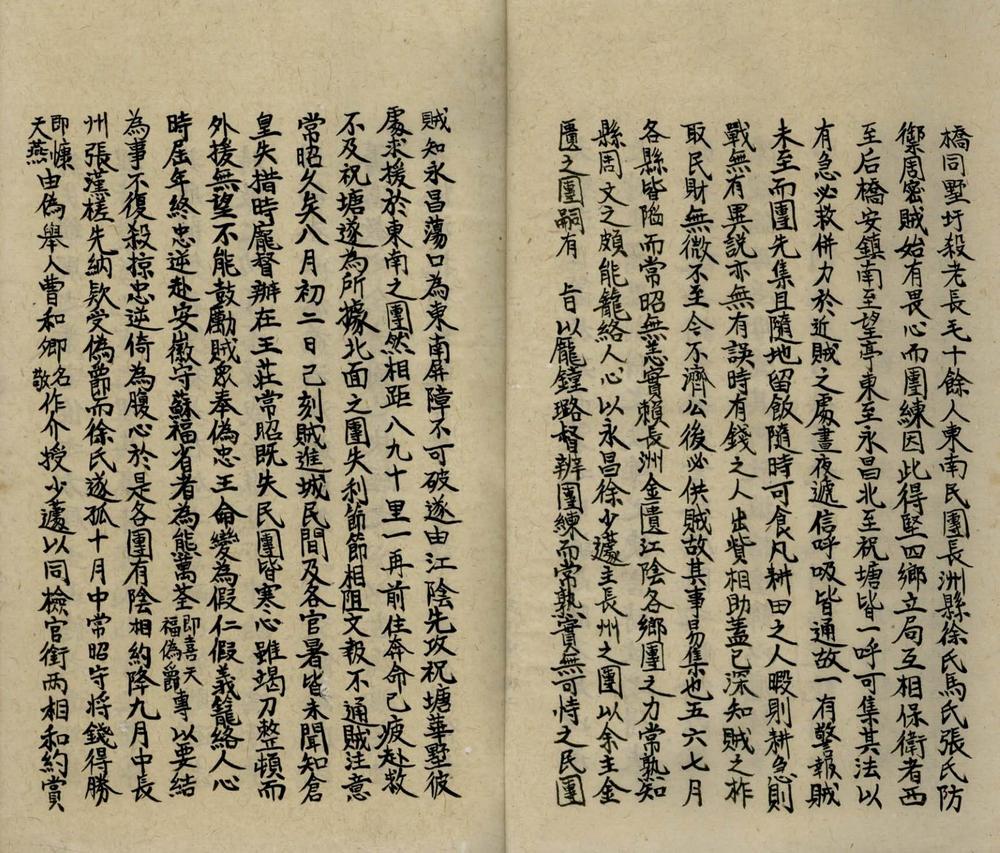 橋同墅圩殺老長毛十餘人東南民團長洲縣徐氏馬氏張氏防
禦周密賊始有畏心而團練因此得堅四鄉立局互相保衛者西
至后橋安鎮南至望亭東至永昌北至祝塘皆一呼可集其法以
有急必救併力於近賊之處晝夜遞信呼吸皆通故一有警報賊
未至而團先集且隨地留飯隨時可食凡耕田之人暇則耕急則
戰無有異説亦無有誤時有錢之人出貲相助蓋已深知賊之作
取民財無微不至今不濟公後必供賊故其事易集也五六七月
各縣皆陷而常昭無恙實賴長洲金匱江陰各鄉團之力常熟知
縣周文之頗能籠絡人心以永昌徐少蘧主長州之團以余主金
匱之團嗣有　旨以龐鐘璐督辦團練而常熟實無可恃之民團
賊知永昌蕩口為東南屏障不可破遂由江陰先攻祝塘華墅彼
處求援於東南之團然相距八九十里一再前往奔命已疲赴救
不及祝塘遂為所據北面之團失利節節相阻文報不通賊注意
常昭久矣八月初二日已刻賊進城民間及各官署皆未聞知倉
皇失措時龐督辦在王莊常昭既失民團皆寒心雖竭力整頓而
外援無望不能鼓勵賊眾奉偽忠王命變為假仁假義籠絡人心
時屆年終忠逆赴安徽守蘇福省者為熊萬荃即喜天福偽爵專以要結
為事不復殺掠忠逆倚為腹心於是各團有陰相約降九月中長
州張漢槎先納欵受偽爵而徐氏遂孤十月中常昭守將錢得勝
即慷天燕由偽舉人曹和卿名敬作介授少蘧以同檢官銜兩相和約賞